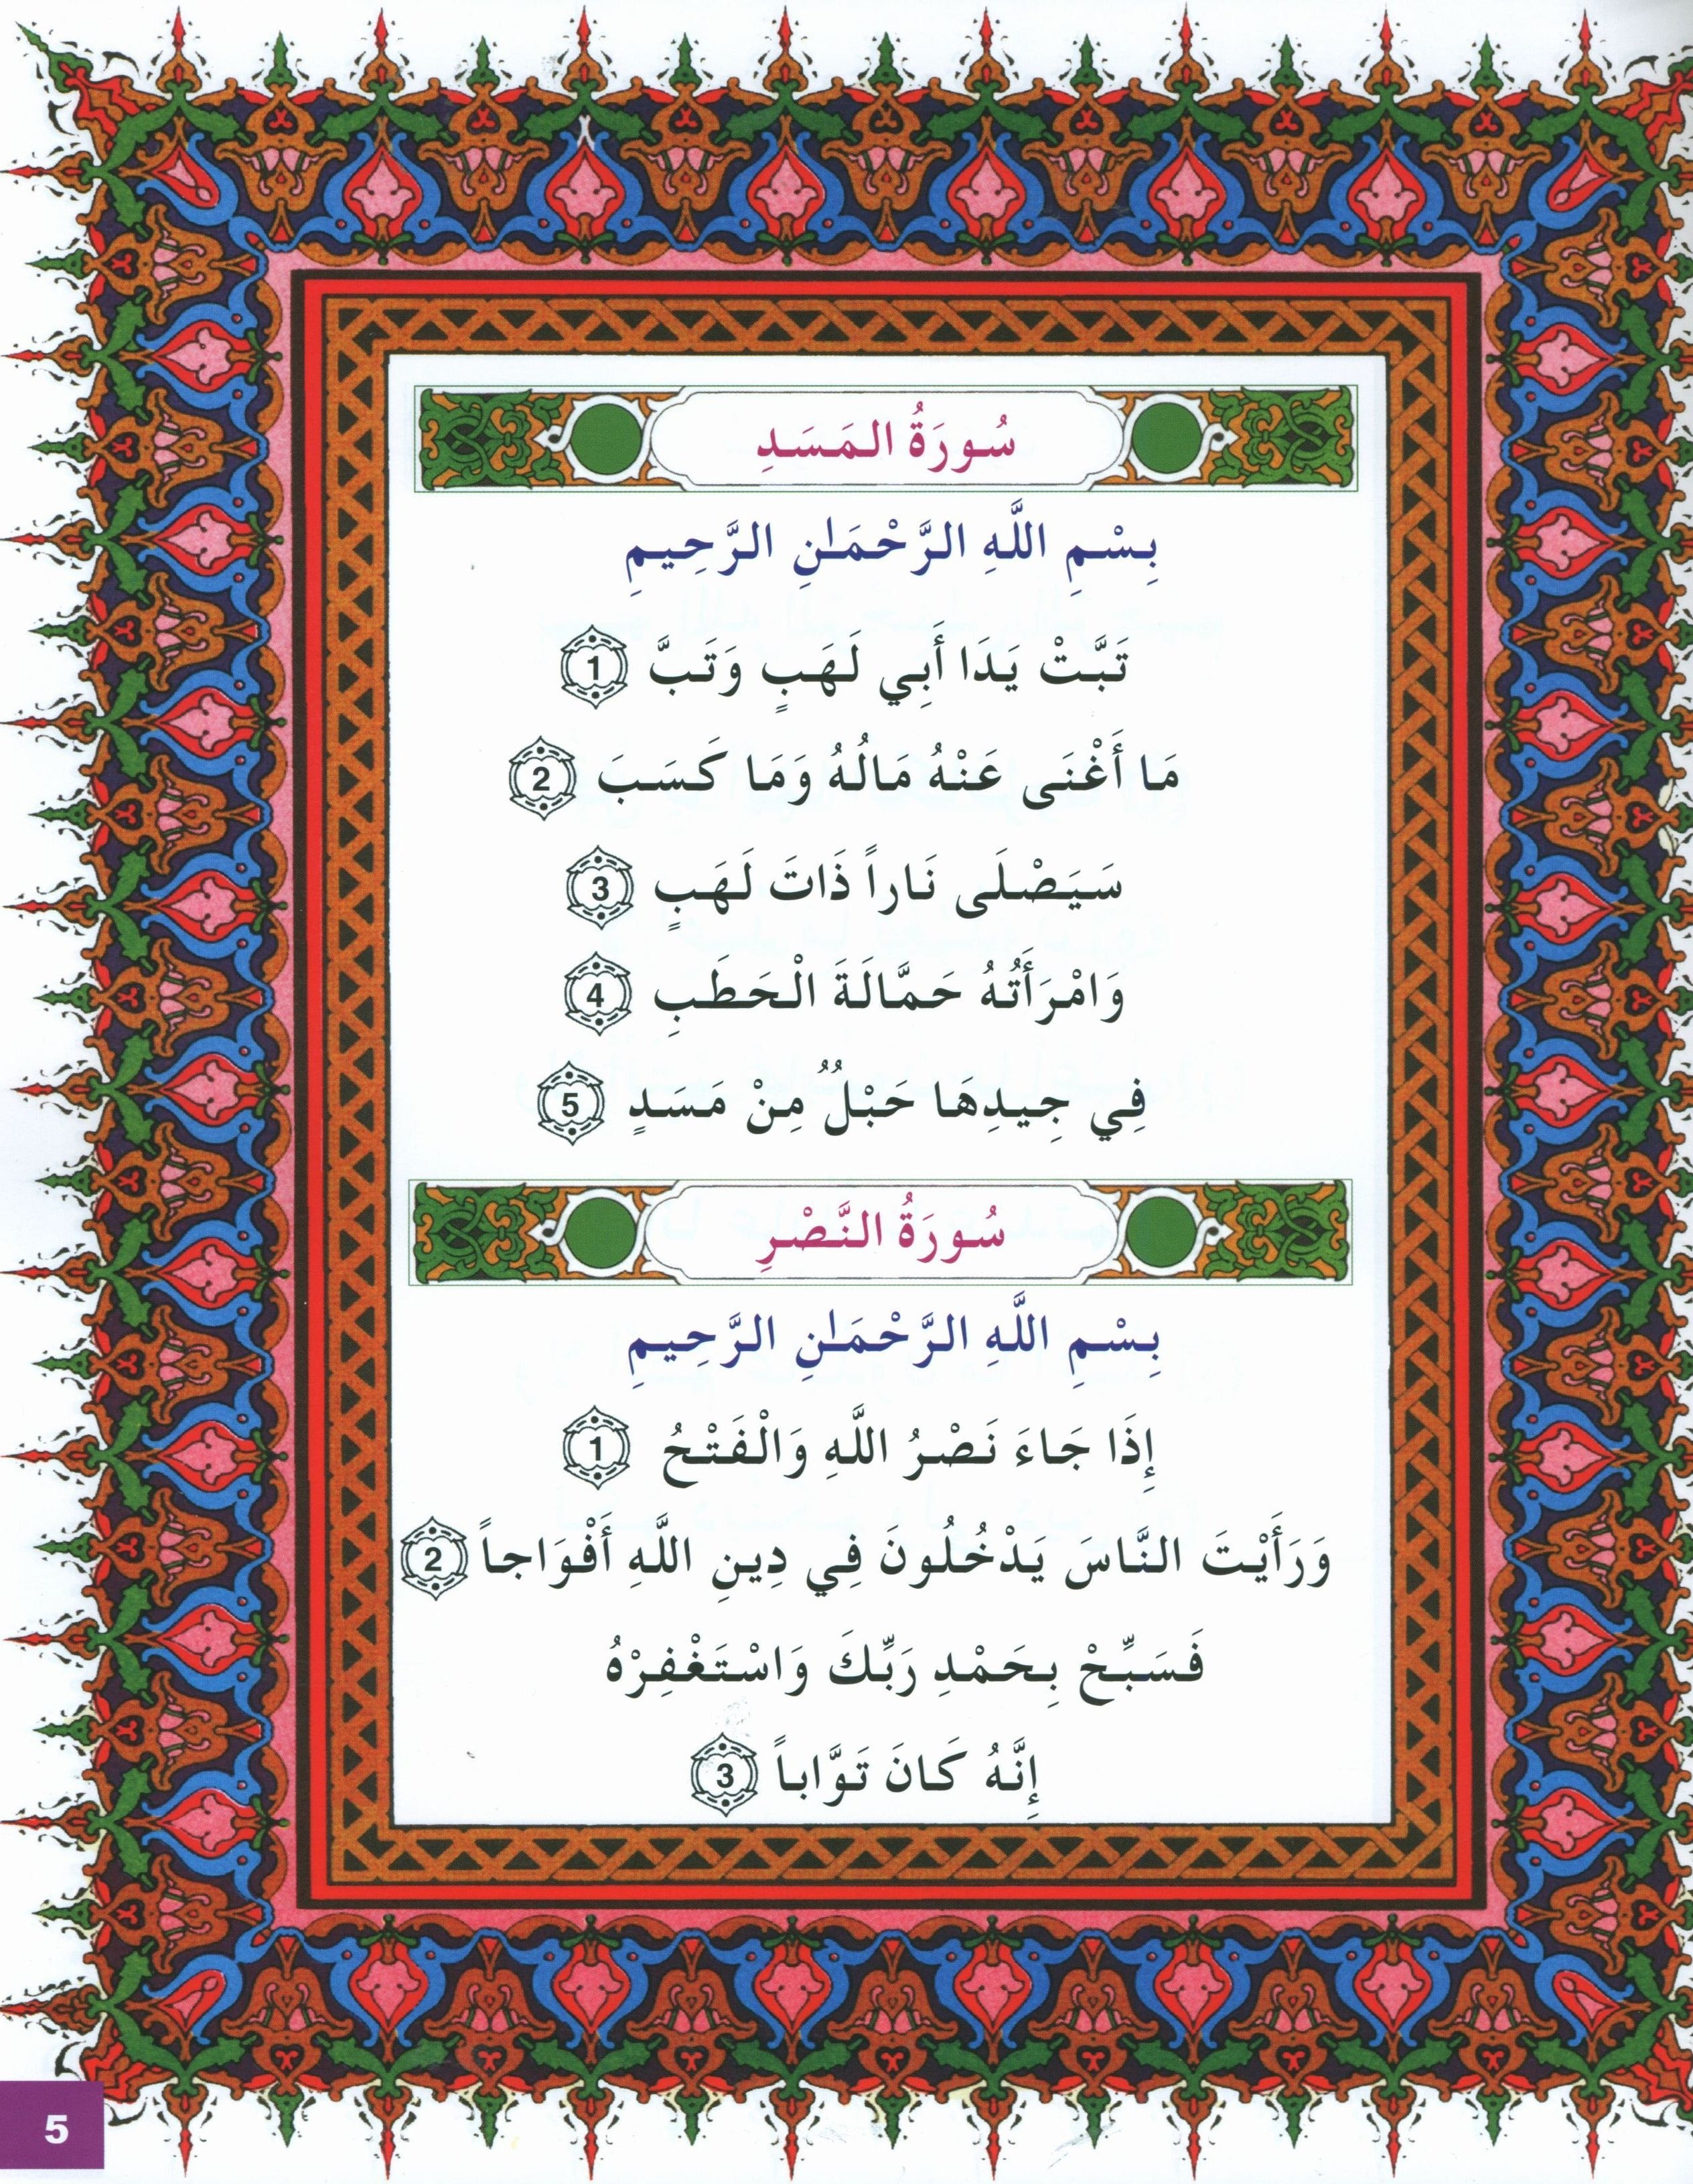 سُورَةُ المَسَدِ
بِسْمِ اللَّهِ الرَّحْمَـٰنِ الرَّحِيمِ
تَبَّتْ يَدَا أَبِي لَهَبٍ وَتَبَّ 1
مَا أَغْنَى عَنْهُ مَالُهُ وَمَا كَسَبَ 2
سَيَصْلَى نَاراً ذَاتَ لَهَبٍ 3
وَامْرَأَتُهُ حَمَّالَةَ الْحَطَبِ 4
فِي جِيدِهَا حَبْلٌ مِنْ مَسَدٍ 5
سُورَةُ النَّصْرِ
بِسْمِ اللَّهِ الرَّحْمَـٰنِ الرَّحِيمِ
إِذَا جَاءَ نَصْرُ اللَّهِ وَالْفَتْحُ 1
وَرَأَيْتَ النَّاسَ يَدْخُلُونَ فِي دِينِ اللَّهِ أَفْوَاجاً 2
فَسَبِّحْ بِحَمْدِ رَبِّكَ وَاسْتَغْفِرْهُ
إِنَّهُ كَانَ تَوَّاباً 3
5